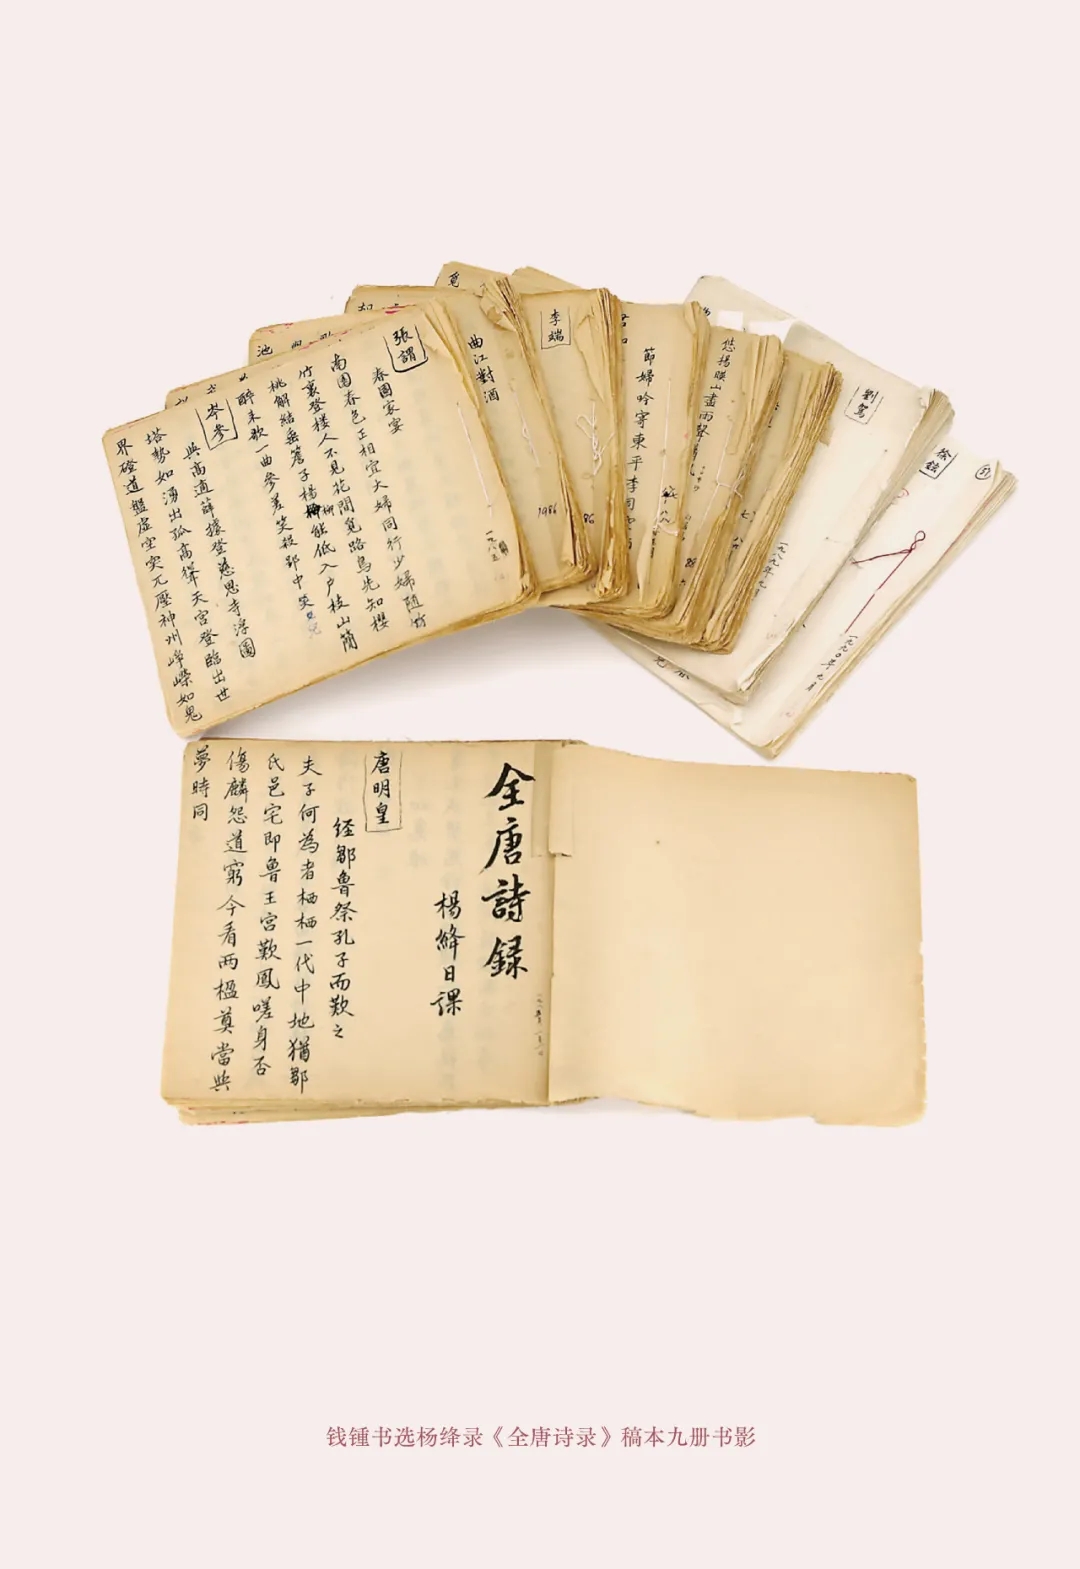 張謂
春園家宴
南園春色正相宜大婦同行少婦隨竹
竹裏登楼人不見花間覓路鳥先知櫻
桃解結垂簷子楊柳能低入户枝山簡
醉来歌一曲參差笑殺郢中兒
岑參
與高適薛據登慈恩寺浮圖
塔勢如湧出孤高聳天宮登臨出世
界磴道盤虛空突兀壓神州崢嶸如鬼
一九八五
池
覓
曲江對酒
1986
李端
86
節婦吟寄東平李司空
悠揚暎山盡雨聲
86
劉駕
一九八九年九月
徐鉉
51
一九九〇年九月
全唐詩録
楊絳日課
唐明皇
経鄒魯祭孔子而歎之
夫子何為者栖栖一代中地猶鄹
氏邑宅即魯王宮歎鳳嗟身否
傷麟怨道窮今看两楹奠當與
夢時同
钱锺书选杨绛录《全唐诗录》稿本九册书影